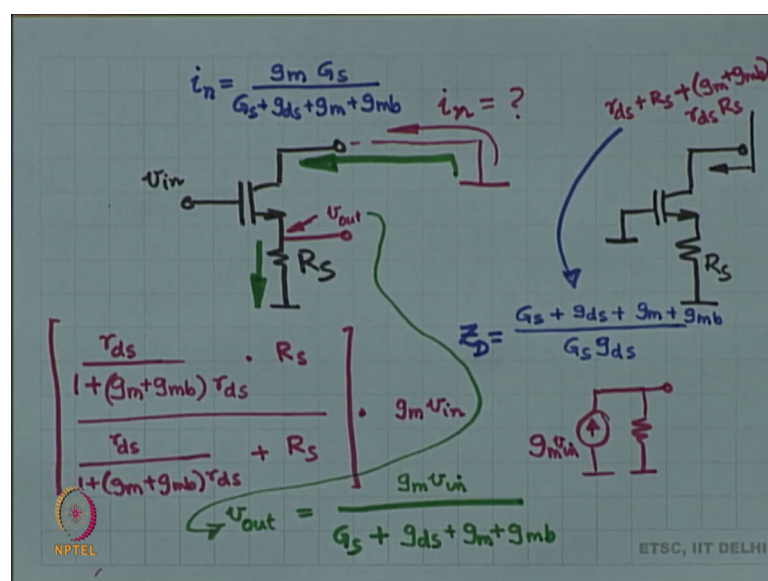 i_n = g_m G_s / (G_s + g_ds + g_m + g_mb)
i_n = ?
r_ds + R_s + (g_m + g_mb)
r_ds R_s
v_in
v_out
R_s
R_s
Z_D = (G_s + g_ds + g_m + g_mb) / (G_s g_ds)
[ ( r_ds / (1 + (g_m + g_mb) r_ds) · R_s ) / ( r_ds / (1 + (g_m + g_mb) r_ds) + R_s ) ] · g_m v_in
g_m v_in
v_out = g_m v_in / (G_s + g_ds + g_m + g_mb)
NPTEL
ETSC, IIT DELHI